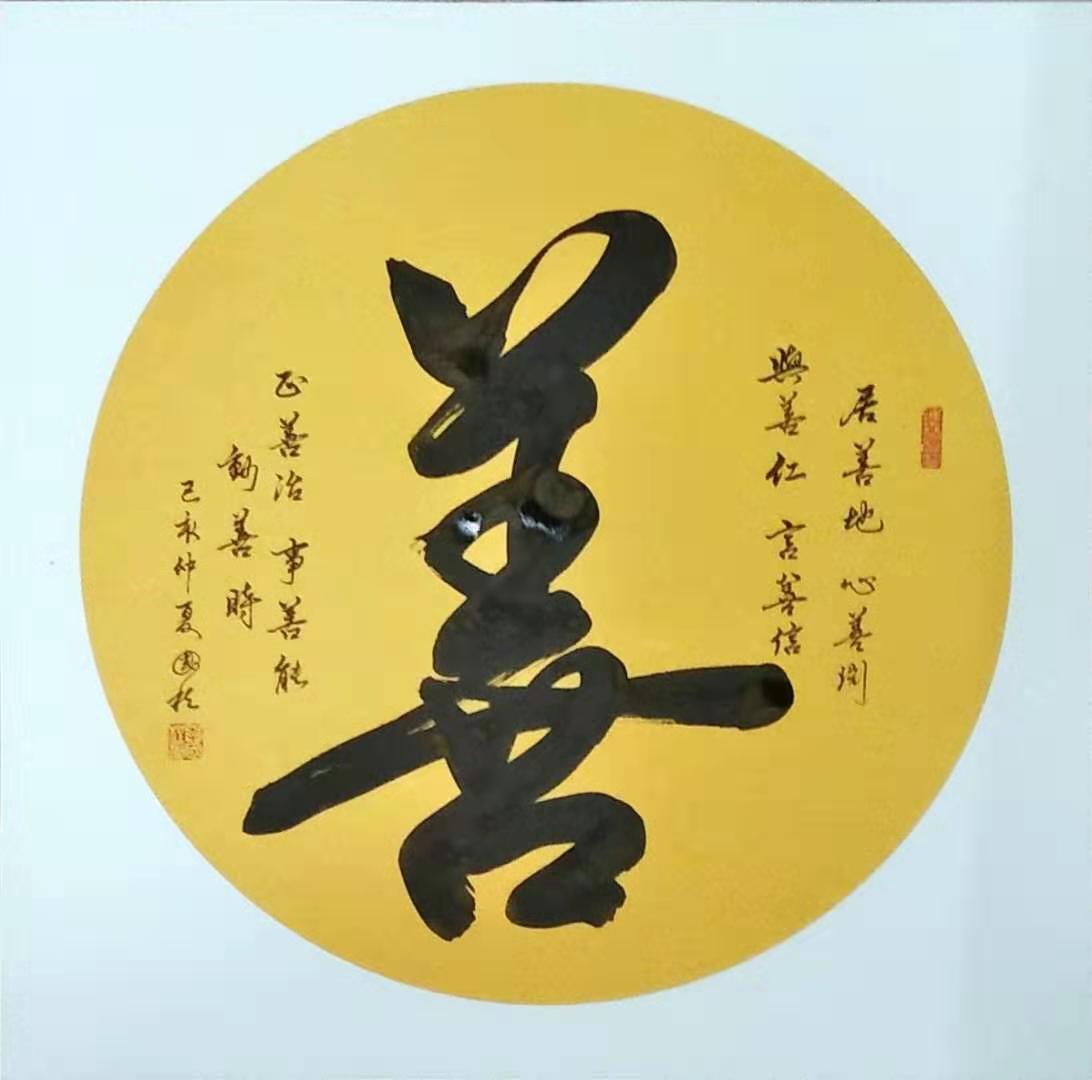 善
居善地 心善渊
與善仁 言善信
正善治 事善能
動善時
己亥仲夏